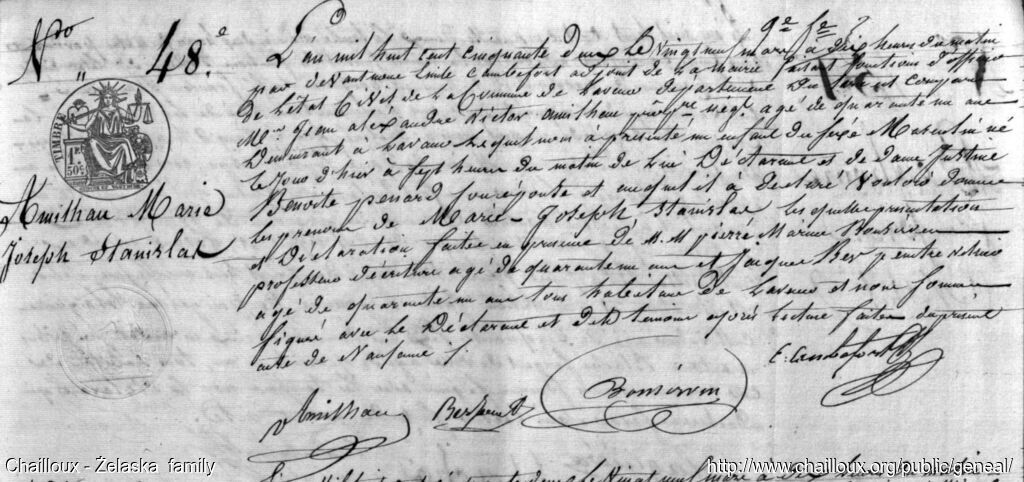 No 48e
TIMBRE
1 FR
50 C
Amilhau Marie
Joseph Stanislas
L'an mil huit cent cinquante deux le vingt neuf mars à dix heures du matin
par devant nous Emile Cambefort adjoint de la mairie faisant fonctions d'officier
de l'état Civil de la Commune de Lavaur département du Tarn est comparu
Mr Jean Alexandre Victor Amilhau négt agé de quarante un ans
Demeurant à Lavaur lequel nous à présenté un enfant du sexe Masculin né
le jour d'hier à sept heures du matin de lui Déclarant et de dame Justine
Benoite penard son épouse et auquel il à déclaré Vouloir donner
les prénoms de Marie Joseph Stanislas les quelles présentation
et Déclaration faites en présence de M.M pierre Marius Bonserven
professeur décriture agé de quarante un ans et Jacques Ber peintre vitrier
agé de quarante un ans tous habitans de Lavaur et nous sommes
signés avec le Déclarant et dits témoins après lecture faite du présent
acte de Naissance
E. Cambefort
Amilhau Ber peintre Bonserven
Chailloux - Želaska family
http://www.chailloux.org/public/geneal/